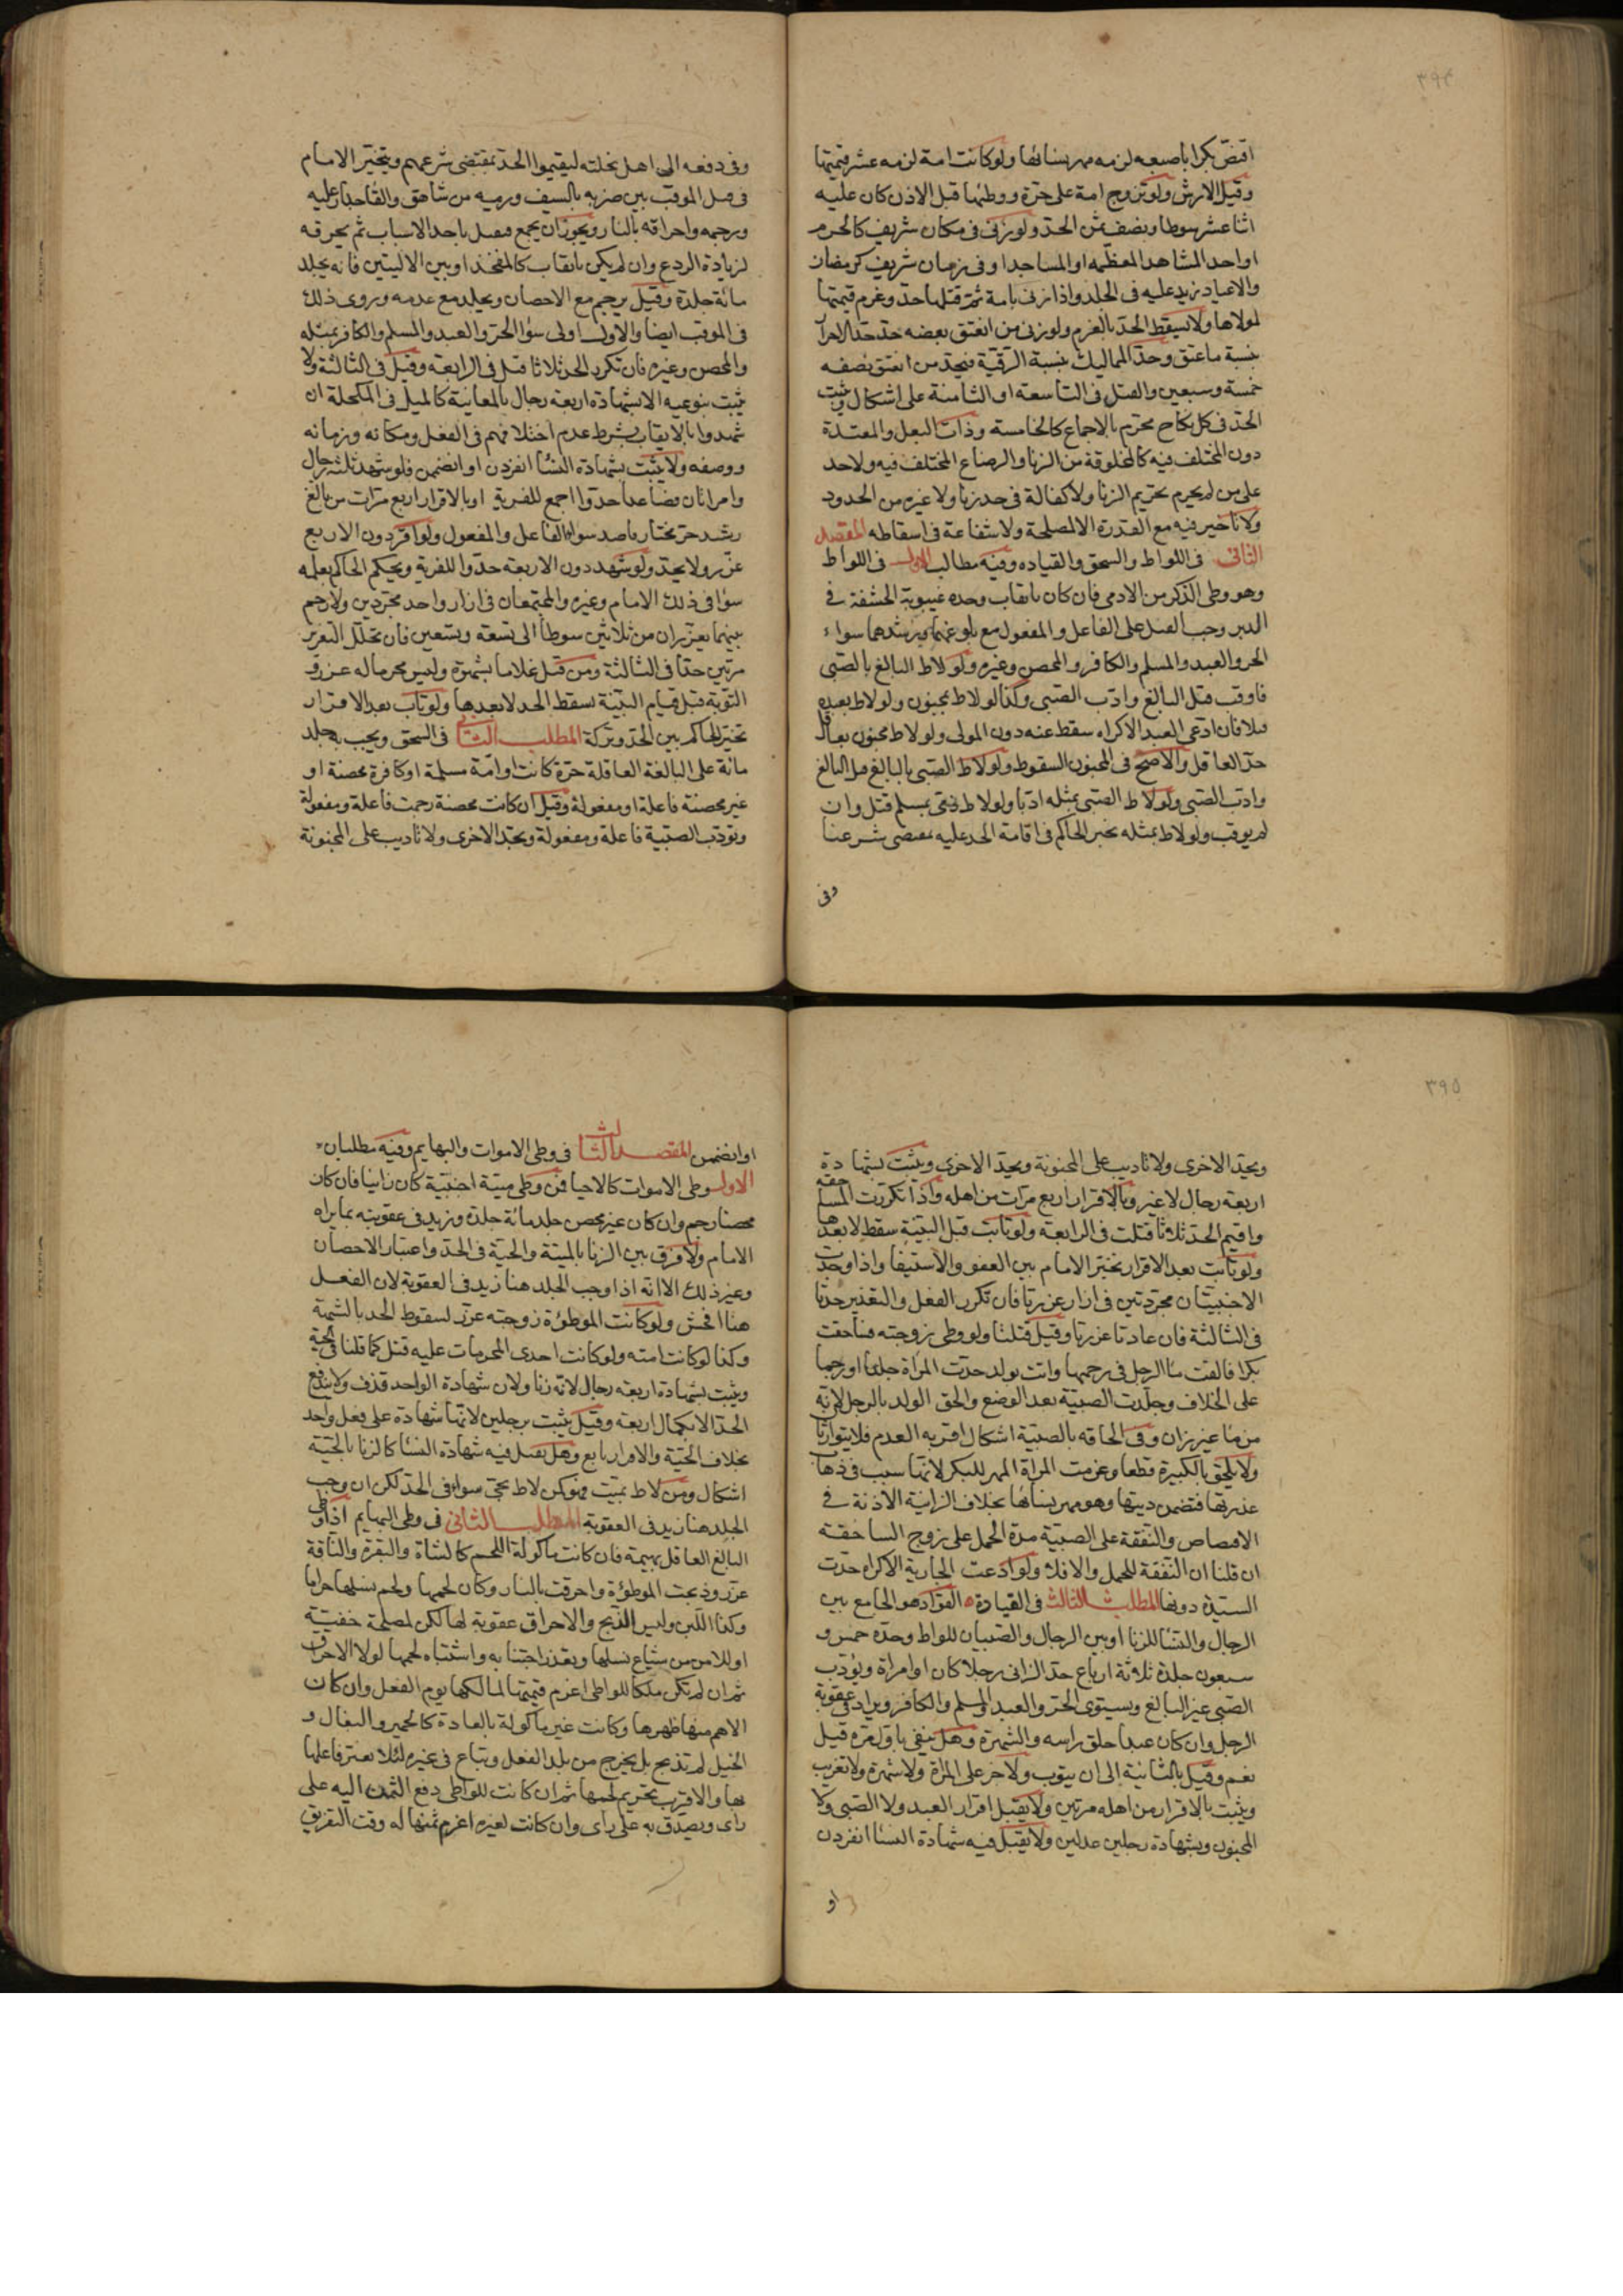 ٣٩٤
افتض بكرا باصبعه لزمه مهر نسائها ولو كانت امة لزمه عشر قيمتها
وقيل الارش ولو تزوج امة على حرة ووطئها قبل الاذن كان عليه
اثنا عشر سوطا ونصف ثمن الحد ولو زنى فى مكان شريف كالحرم
او احد المشاهد المعظمه او المساجد او فى زمان شريف كرمضان
والاعياد زيد عليه فى الجلد واذا زنى بامة ثم قتلها حد وغرم قيمتها
لمولاها ولا يسقط الحد بالغرم ولو زنى من انعتق بعضه حد حد الاحرار
بنسبة ما عتق وحد المماليك بنسبة الرقية فيحد من انعتق نصفه
خمسة وسبعين والقتل فى التاسعة او الثامنة على اشكال ويثبت
الحد فى كل نكاح محرم بالاجماع كالخامسة وذات البعل والمعتدة
دون المختلف فيه كالمخلوقة من الزنا والرضاع المختلف فيه ولا حد
على من لم يحرم تحريم الزنا ولا كفالة فى حد زنا ولا غيره من الحدود
ولا تاخير فيه مع القدرة الا لمصلحة ولا شفاعة فى اسقاطه المقصد
الثانى فى اللواط والسحق والقياده وفيه مطالب الاول فى اللواط
وهو وطى الذكر من الادمى فان كان بايقاب وحده غيبوبة الحشفة فى
الدبر وجب القتل على الفاعل والمفعول مع بلوغهما ورشدهما سواء
الحر والعبد والمسلم والكافر والمحصن وغيره ولو لاط البالغ بالصبى
فاوقب قتل البالغ وادب الصبى وكذا لو لاط بمجنون ولو لاط بعبده
قتلا فان ادعى العبد الاكراه سقط عنه دون المولى ولو لاط مجنون بعاقل
حد العاقل والاصح فى المجنون السقوط ولو لاط الصبى بالبالغ قتل البالغ
وادب الصبى ولو لاط الصبى بمثله ادبا ولو لاط ذمى بمسلم قتل وان
لم يوقب ولو لاط بمثله تخير الحاكم فى اقامة الحد عليه بمقتضى شرعنا
وفى
وفى دفعه الى اهل نحلته ليقيموا الحد بمقتضى شرعهم ويتخير الامام
فى قتل الموقب بين ضربه بالسيف ورميه من شاهق والقا جدار عليه
ورجمه واحراقه بالنار ويجوز ان يجمع فيقتل باحد الاسباب ثم يحرقه
لزيادة الردع وان لم يكن بايقاب كالمفخذ او بين الاليتين فانه يجلد
مائة جلدة وقيل يرجم مع الاحصان ويجلد مع عدمه وروى ذلك
فى الموقب ايضا والاول اولى سوا الحر والعبد والمسلم والكافر بمثله
والمحصن وغيره فان تكرر الحد ثلاثا قتل فى الرابعة وقيل فى الثالثة ولا
يثبت بنوعيه الا بشهادة اربعة رجال بالمعاينة كالميل فى المكحلة ان
شهدوا بالايقاب بشرط عدم اختلافهم فى الفعل ومكانه وزمانه
ووصفه ولا يثبت بشهادة النسا انفردن او انضممن فلو شهد ثلثة رجال
وامراتان فصاعدا حدوا اجمع للفرية او بالاقرار اربع مرات من بالغ
رشيد حر مختار قاصد سوا الفاعل والمفعول ولو اقر دون الاربع
عزر ولا يحد ولو شهد دون الاربعة حدوا للفرية ويحكم الحاكم بعلمه
سوا فى ذلك الامام وغيره والمجتمعان فى ازار واحد مجردين ولا رحم
بينهما يعزران من ثلاثين سوطا الى تسعة وتسعين فان تخلل التعزير
مرتين حدا فى الثالثة ومن قبل غلاما بشهوة وليس محرما له عزر و
التوبة قبل قيام البينة تسقط الحد لا بعدها ولو تاب بعد الاقرار
تخير الحاكم بين الحد وتركه المطلب الثانى فى السحق ويجب به جلد
مائة على البالغة العاقلة حرة كانت او امة مسلمة او كافرة محصنة او
غير محصنة فاعلة او مفعولة وقيل ان كانت محصنة رجمت فاعلة ومفعولة
وتودب الصبية فاعلة ومفعولة وتحد الاخرى ولا تاديب على المجنونة
٣٩٥
وتحد الاخرى ولا تاديب على المجنونة وتحد الاخرى ويثبت بشهادة
اربعة رجال لا غير وبالاقرار اربع مرات من اهله واذا تكررت المساحقة
واقيم الحد ثلاثا قتلت فى الرابعة ولو تابت قبل البينة سقط لا بعدها
ولو تابت بعد الاقرار تخير الامام بين العفو والاستيفا واذا وجدت
الاجنبيتان مجردتين فى ازار عزرتا فان تكرر الفعل والتعذير حدتا
فى الثالثة فان عادتا عزرتا وقيل قتلتا ولو وطى زوجته فساحقت
بكرا فالقت ما الرجل فى رحمها واتت بولد حدت المراة جلدا او رجما
على الخلاف وجلدت الصبية بعد الوضع والحق الولد بالرجل لانه
من ما غير زان وفى الحاقه بالصبية اشكال اقربه العدم فلا يتوارثا
ولا يلحق بالكبيرة قطعا وغرمت المراة المهر للبكر لانها سبب فى ذهاب
عذرتها فتضمن ديتها وهو مهر نسائها بخلاف الزانية الاذنة فى
الافتضاض والنفقة على الصبية مدة الحمل على زوج المساحقة
ان قلنا ان النفقة للحمل والا فلا ولو ادعت الجارية الاكراه حدت
السيدة دونها المطلب الثالث فى القيادة القواد هو الجامع بين
الرجال والنسا للزنا او بين الرجال والصبيان للواط وحده خمس و
سبعون جلدة ثلاثة ارباع حد الزانى رجلا كان او امراة ويؤدب
الصبى غير البالغ ويستوى الحر والعبد والمسلم والكافر ويزاد فى عقوبة
الرجل وان كان عبدا حلق راسه والشهرة وهل ينفى باول مرة قيل
نعم وقيل بالثانية الى ان يتوب ولا جز على المراة ولا شهرة ولا تغريب
ويثبت بالاقرار من اهله مرتين ولا يقبل اقرار العبد ولا الصبى ولا
المجنون وبشهادة رجلين عدلين ولا يقبل فيه شهادة النسا انفردن
او
او انضممن المقصد الثالث فى وطى الاموات والبهايم وفيه مطلبان
الاول وطى الاموات كالاحيا فمن وطى ميتة اجنبية كان زانيا فان كان
محصنا رجم وان كان غير محصن جلد مائة جلدة وزيد فى عقوبته بما يراه
الامام ولا فرق بين الزنا بالميتة والحية فى الحد واعتبار الاحصان
وغير ذلك الا انه اذا وجب الجلد هنا زيد فى العقوبة لان الفعل
هنا افحش ولو كانت الموطؤة زوجته عزر لسقوط الحد بالشبهة
وكذا لو كانت امته ولو كانت احدى المحرمات عليه قتل كما قلنا فى الحية
ويثبت بشهادة اربعة رجال لانه زنا ولان شهادة الواحد قذف ولا يندفع
الحد الا بكمال اربعة وقيل يثبت برجلين لانها شهادة على فعل واحد
بخلاف الحية والاقرار تابع وهل تقبل فيه شهادة النسا كالزنا بالحية
اشكال ومن لاط بميت فهو كمن لاط بحى سواء فى الحد لكن ان وجب
الجلد هنا زيد فى العقوبة المطلب الثانى فى وطى البهايم اذا وطى
البالغ العاقل بهيمة فان كانت ماكولة اللحم كالشاة والبقرة والناقة
عزر وذبحت الموطؤة واحرقت بالنار وكان لحمها ولحم نسلها حراما
وكذا اللبن وليس الذبح والاحراق عقوبة لها لكن لمصلحة خفيـة
او للامن من شياع نسلها وتعذر اجتنابه واشتباه لحمها لولا الاحراق
ثم ان لم تكن ملكا للواطى اغرم قيمتها لمالكها يوم الفعل وان كان
الاهم منها ظهرها وكانت غير ماكولة بالعادة كالحمير والبغال و
الخيل لم تذبح بل يخرج من بلد الفعل ويباع فى غيره لئلا يعير فاعلها
بها والاقرب تحريم لحمها ثم ان كانت للواطى دفع الثمن اليه على
راى ويصدق به على راى وان كانت لغيره اغرم ثمنها له وقت التفريق